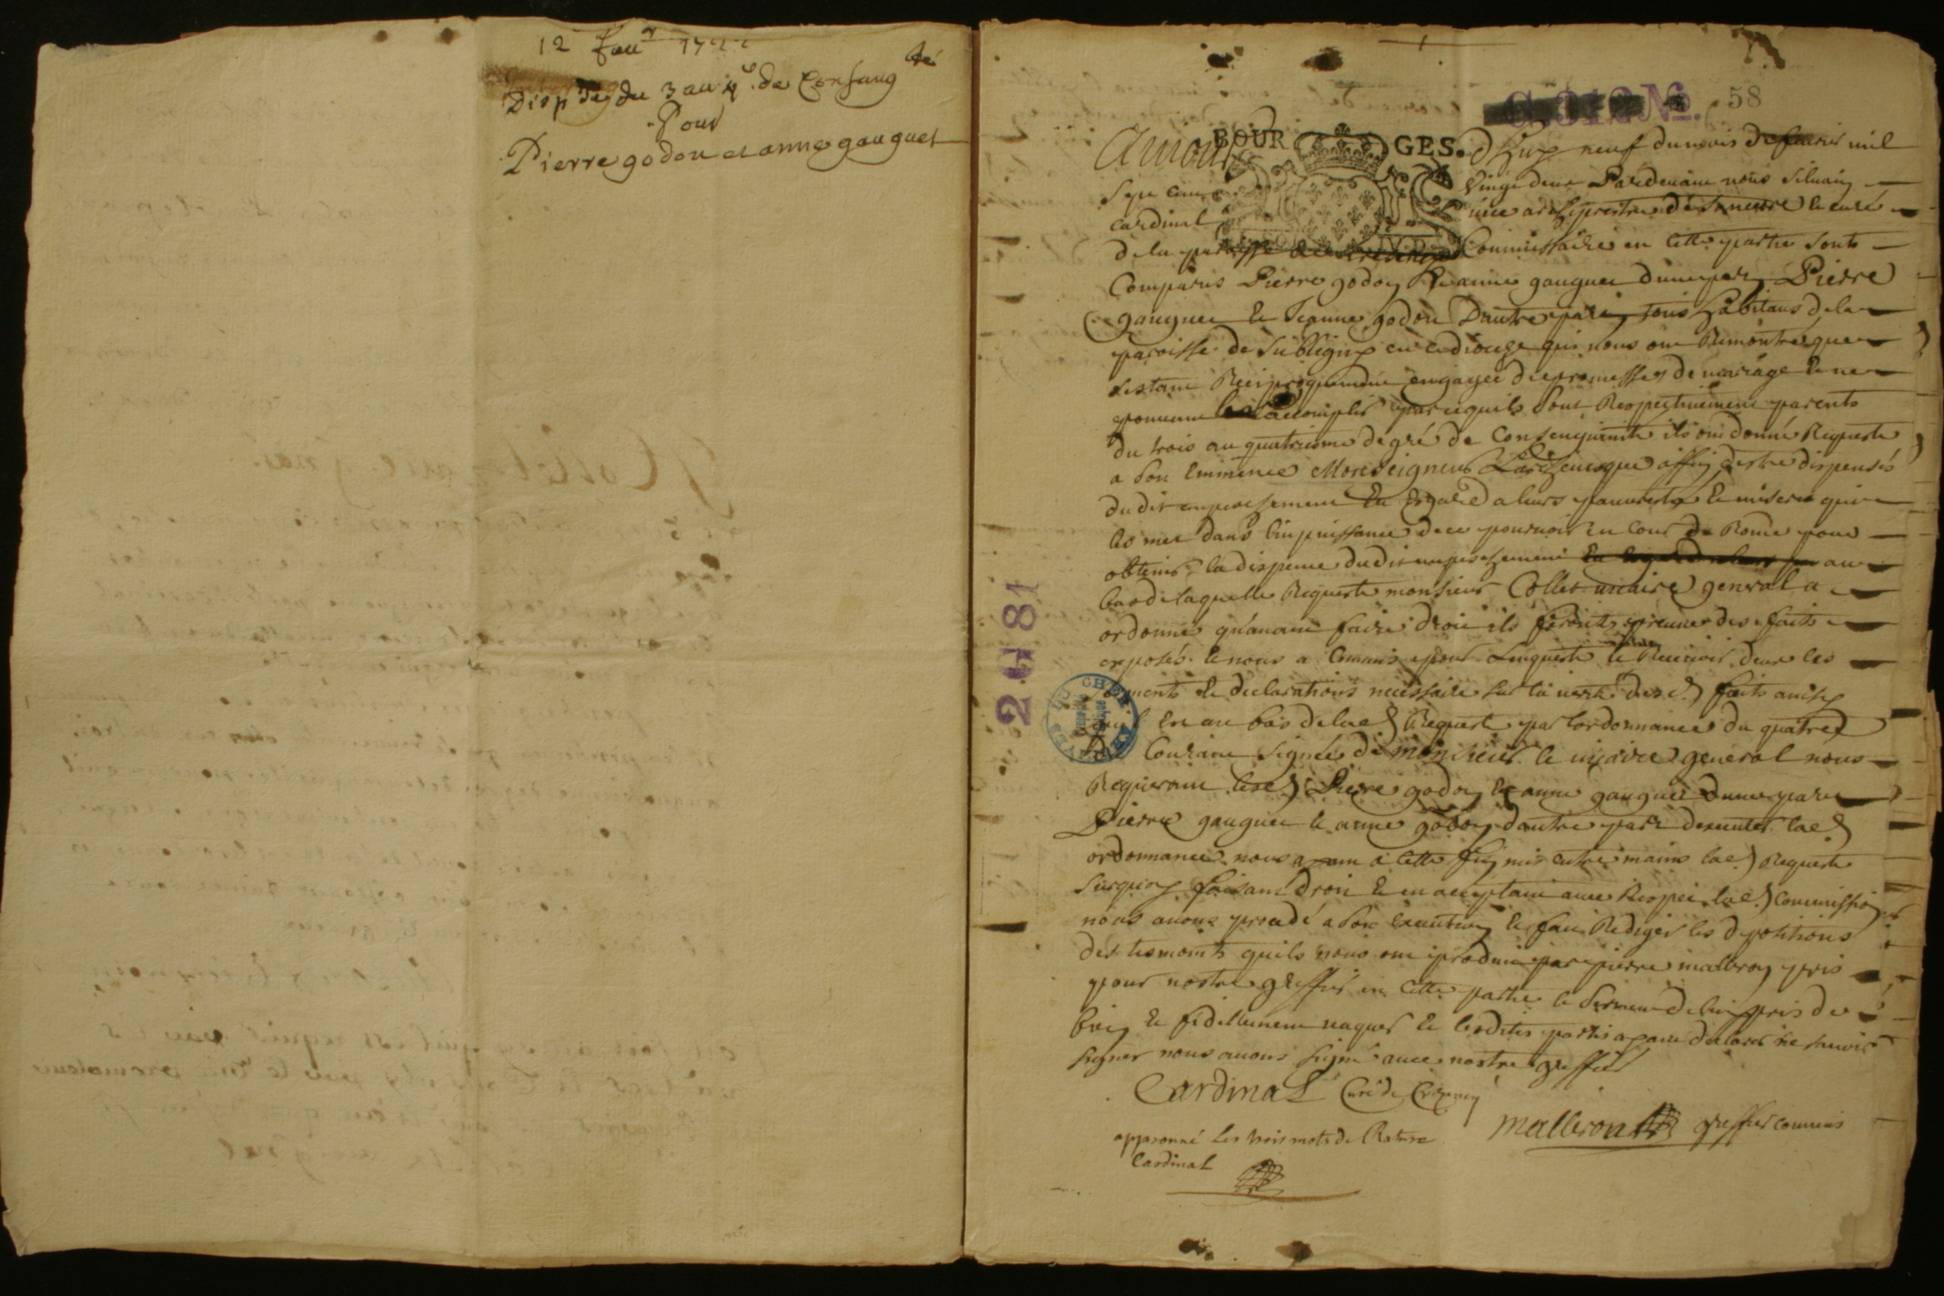 12 feur 1722
Dispse du 3 au 4e de Consang té
Pour
Pierre godon et anne gauguet
58
BOURGES.
Aujourdhuy neuf du mois de feurier mil
sept cens vingt deux Pardeuant nous siluain
cardinal archiprestre de curé
de la paroisse de Commissaire en cette partie sont
Comparus Pierre godon Et anne gauguet dune part, Pierre
gauguet Et Jeanne godon Dautre part, tous habitans de la
paroisse de Subligny en ce dioceze qui nous ont Remontré que
sestant Reciproquement engagée de promesses de mariage Et ne
pouuant les accomplir parcequils sont Respectiuement parents
du trois au quatriesme degré de Consenguinité ils ont donné Requeste
a Son Eminence Monseigneur Larcheuesque affin destre dispensés
dudit empeschement Eu Egard a leurs pauureté Et misere qui
les met dans linpuissance de ce pouruoir En Cour de Rome pour
obtenir la dispense dudit empeschement au
bas de laquelle Requeste monsieur Collet uicaire general a
ordonné quauant faire droit ils feront preuue des faits
exposés Et nous a Commis pour Lenqueste Et Receuoir deux les
serments Et declarations necessaire sur la uerité desd) faits
En au bas de lad) Requeste par lordonnance du quatre
Courant signée de monsieur le uicaire general nous
Requerant lesd) Pierre godon Et anne gauguet dune part
Pierre gauguet Et anne godon dautre part dexecuter lad)
ordonnance nous ayant a cette fin mis entre mains lad) Requeste
surquoy faisant droit Et en acceptant auec Respect lad) Commission
nous auons procedé a son Execution Et fait Rediger les depositions
des tesmoints quils nous ont produit par pierre malbron pris
pour nostre greffier en cette partie le serment de luy pris de
bien Et fidellement uaquer Et lesdites parties ayant declaré ne scauoir
signer nous auons signé auec nostre greffier
Cardinal Curé de
malbron greffier commis
approuué les trois mots de Rature
Cardinal
2 G 81
ARCHIVES DU CHER